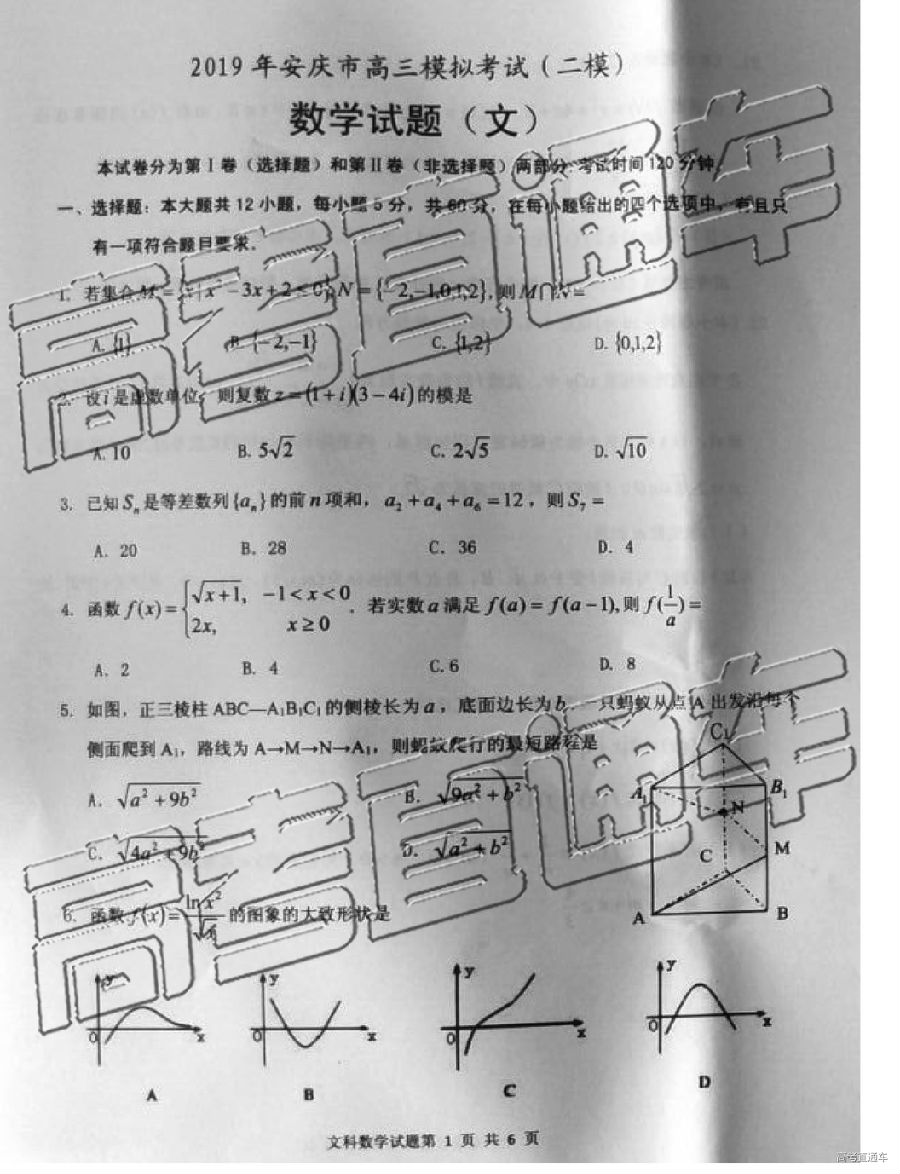 2019年安庆市高三模拟考试（二模）
数学试题（文）
本试卷分为第Ⅰ卷（选择题）和第Ⅱ卷（非选择题）两部分.考试时间120分钟.
一、选择题：本大题共12小题，每小题5分，共60分，在每小题给出的四个选项中，有且只
有一项符合题目要求。
1. 若集合M={x|x²-3x+2≤0}, N={-2,-1,0,1,2},则M∩N=
A. {1} B. {-2,-1} C. {1,2} D. {0,1,2}
2. 设i是虚数单位，则复数z=(1+i)(3-4i)的模是
A. 10 B. 5√2 C. 2√5 D. √10
3. 已知Sₙ是等差数列{aₙ}的前n项和，a₂+a₄+a₆=12，则S₇=
A. 20 B. 28 C. 36 D. 4
4. 函数f(x)={√x+1, -1<x<0
2x, x≥0
. 若实数a满足f(a)=f(a-1),则f(1/a)=
A. 2 B. 4 C. 6 D. 8
5. 如图，正三棱柱ABC—A₁B₁C₁的侧棱长为a，底面边长为b，一只蚂蚁从点A出发沿每个
侧面爬到A₁，路线为A→M→N→A₁，则蚂蚁爬行的最短路程是
A. √a²+9b² B. √9a²+b²
C. √4a²+9b² D. √a²+b²
C₁
A₁ B₁
N
C M
A B
6. 函数f(x)=ln x²/√x 的图象的大致形状是
y y y y
O x O x O x O x
A B C D
文科数学试题第 1 页 共 6 页
高考直通车
高考直通车
高考直通车